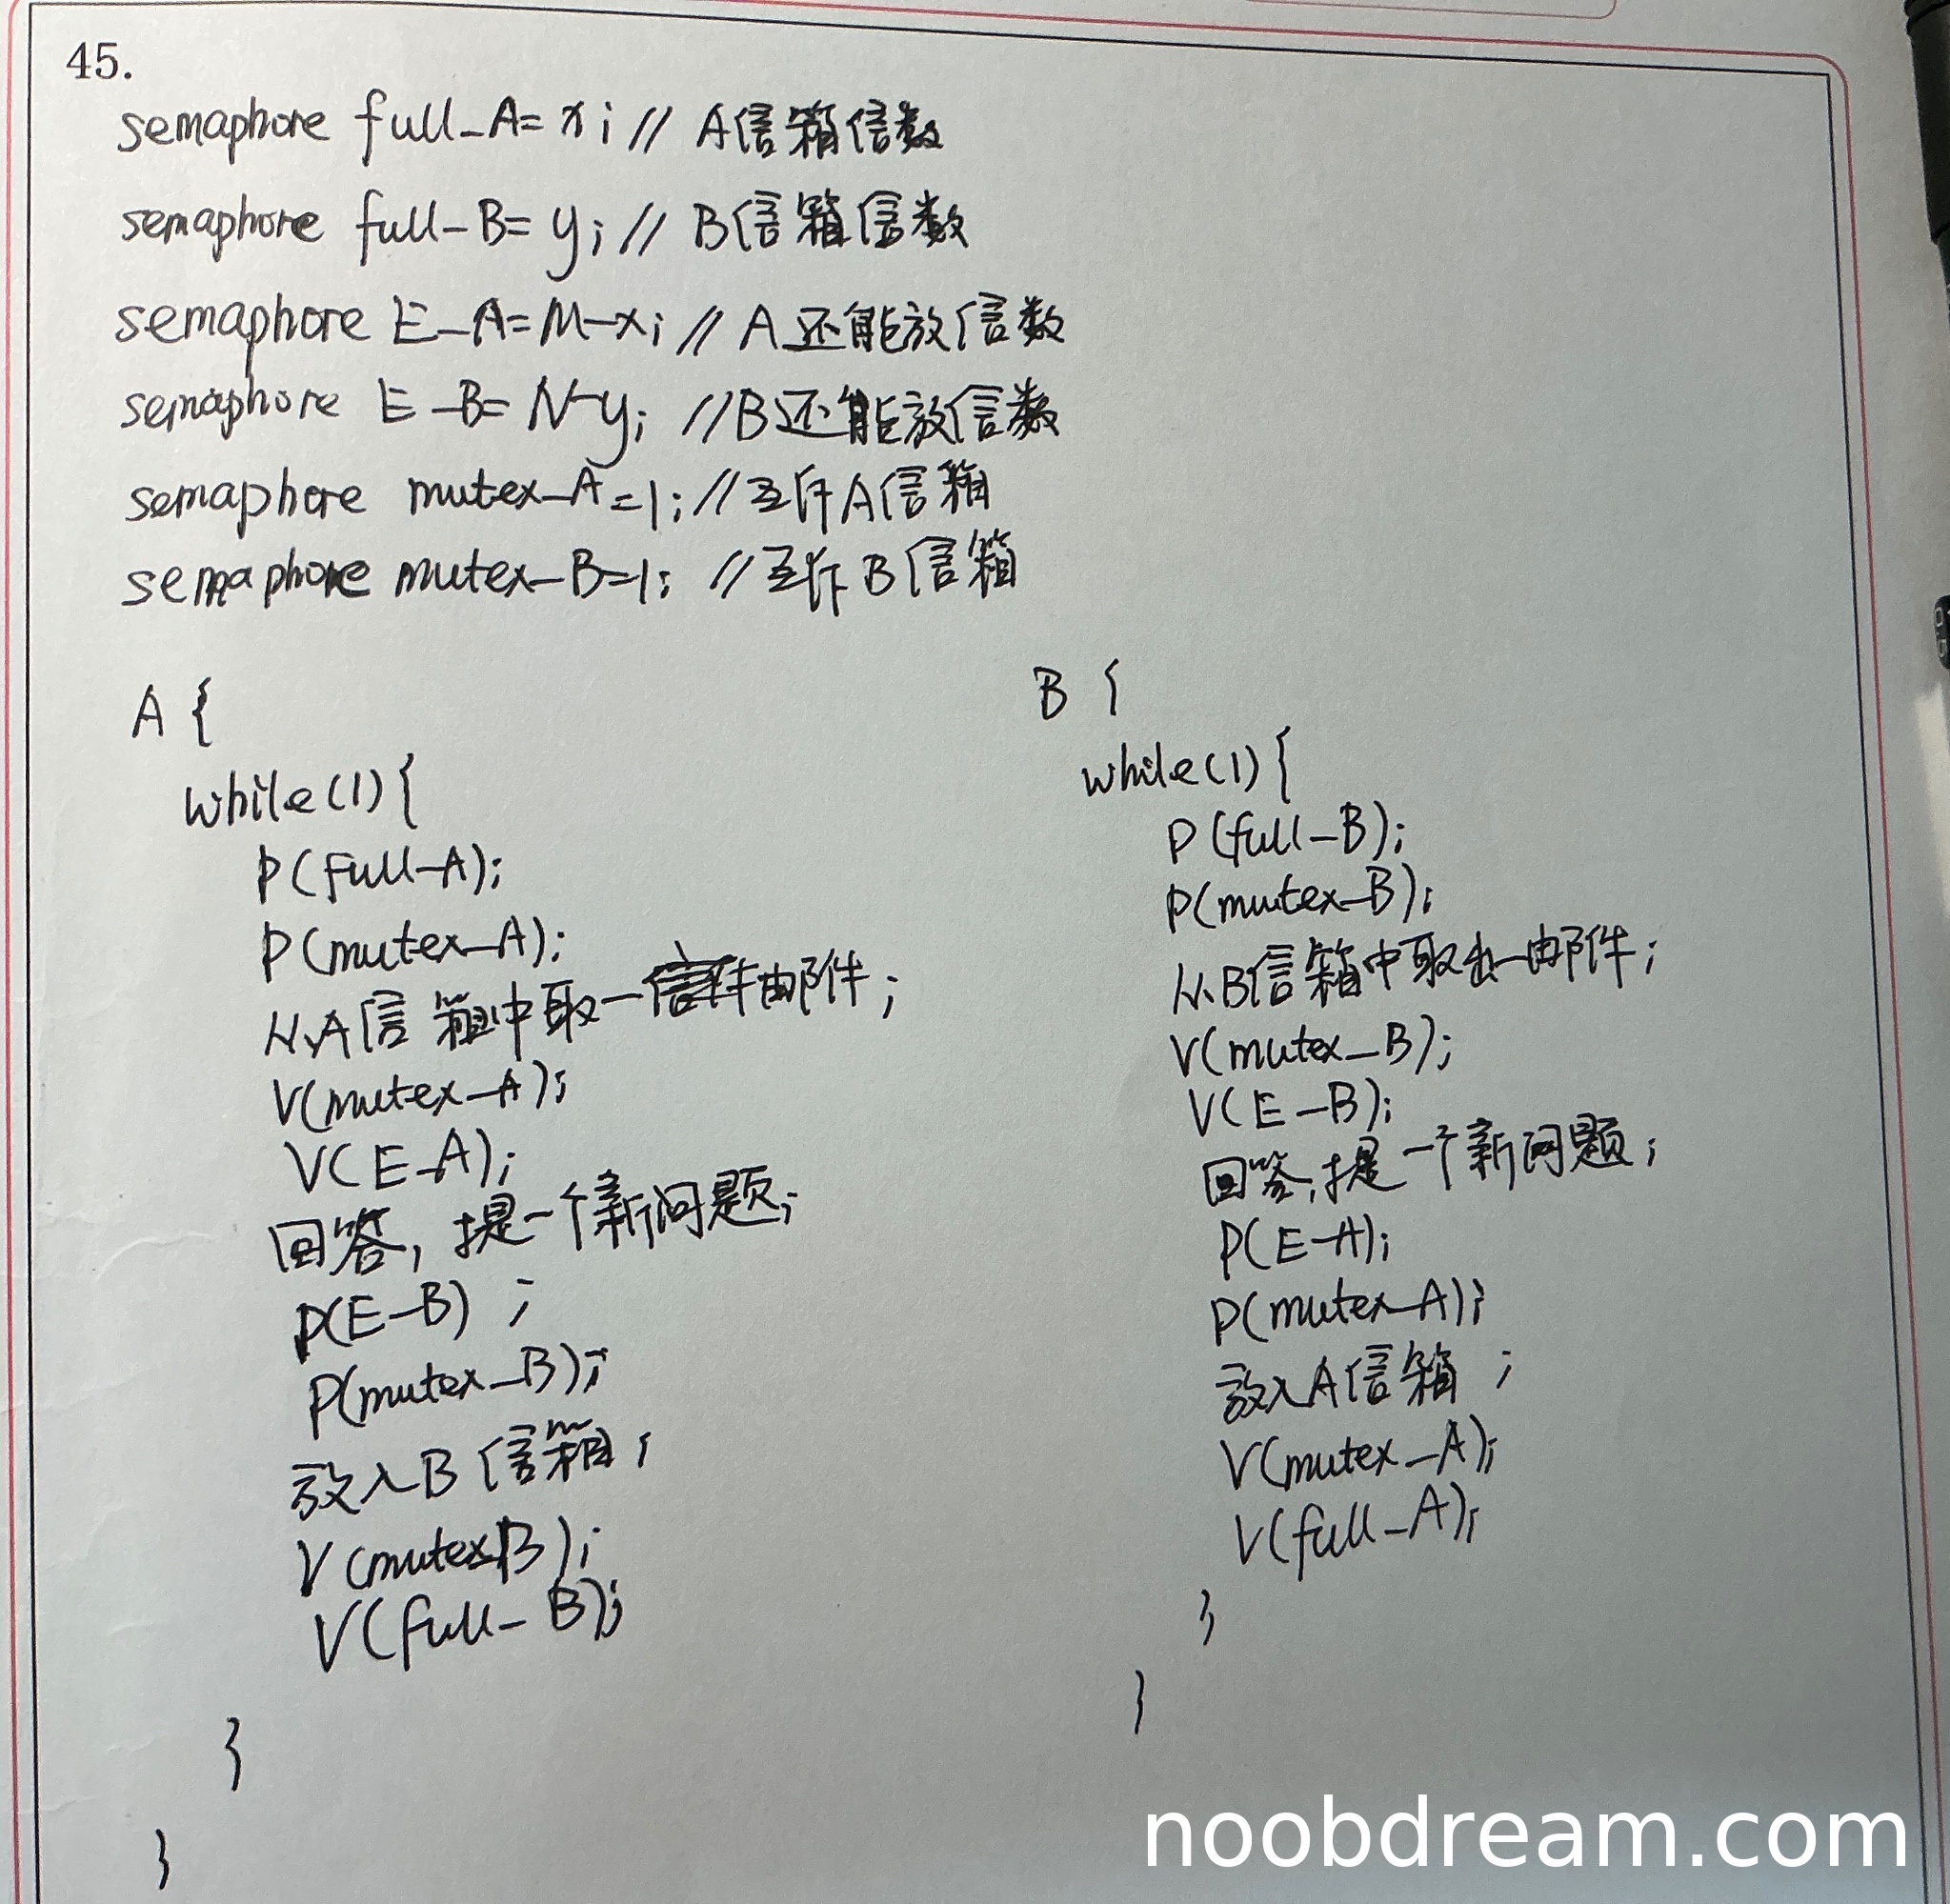 45.
semaphore full_A= x; // A信箱信数
semaphore full-B= y; // B信箱信数
semaphore E_A=M-x; // A还能放信数
semaphore E_B= N-y; //B还能放信数
semaphore mutex_A=1; //互斥A信箱
semaphore mutex-B=1; //互斥B信箱
A {
while(1){
P(full-A);
P(mutex_A);
从A信箱中取一邮件;
V(mutex_A);
V(E_A);
回答, 提一个新问题;
P(E-B) ;
P(mutex_B);
放入B信箱;
V(mutex_B);
V(full-B);
}
}
B {
while(1){
P(full-B);
P(mutex_B);
从B信箱中取出一邮件;
V(mutex_B);
V(E-B);
回答, 提一个新问题;
P(E-A);
P(mutex_A);
放入A信箱 ;
V(mutex_A);
V(full_A);
}
}
noobdream.com